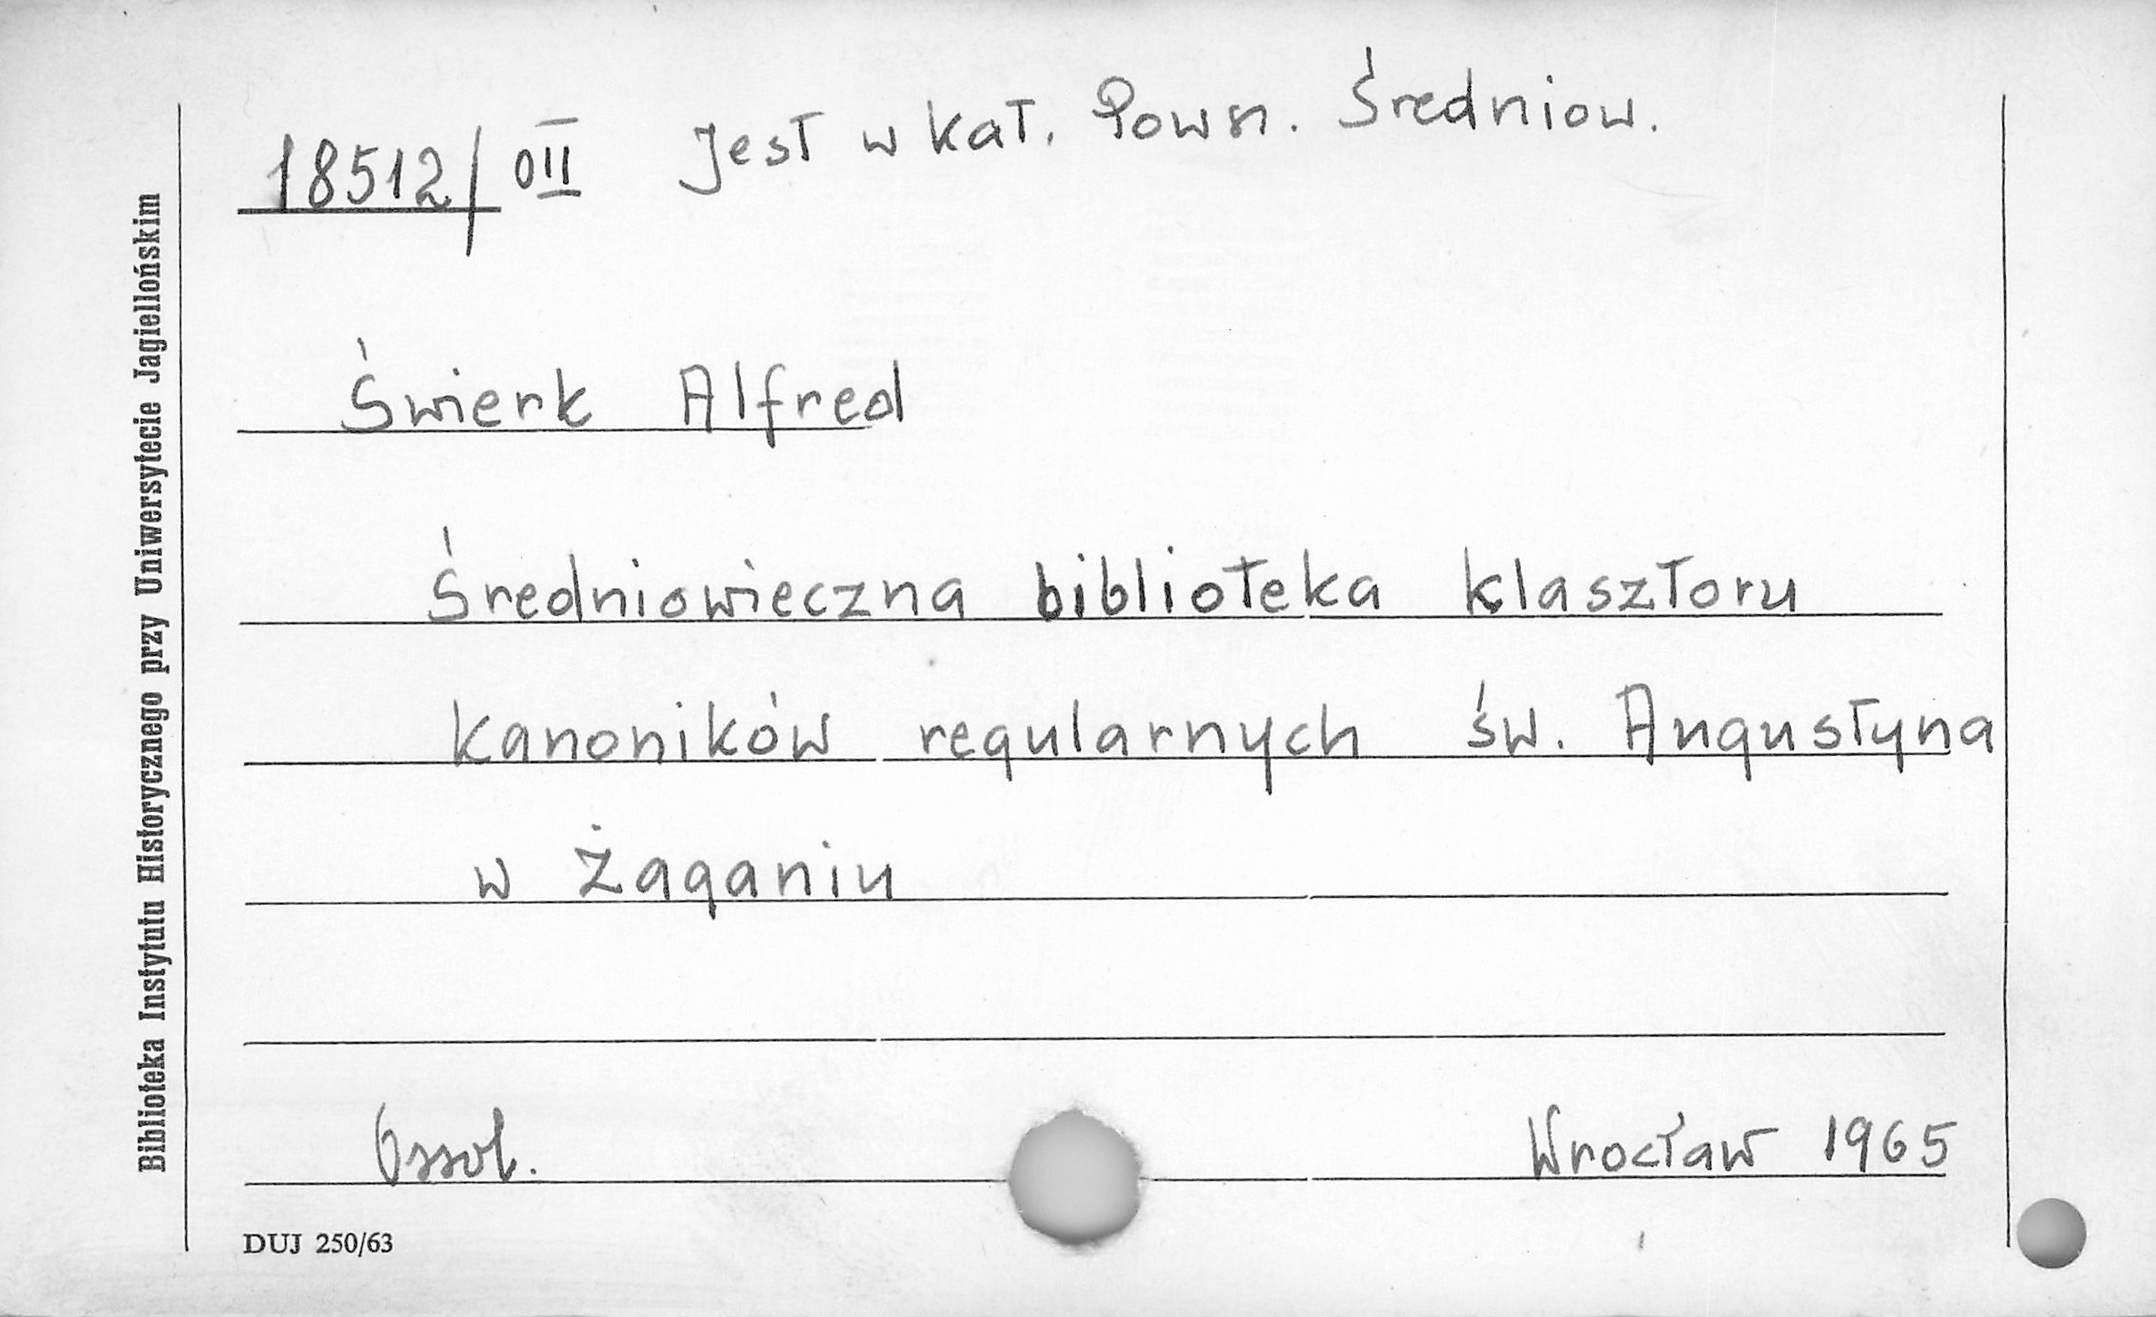 18512/OII Jest w kat. Powsz. Średniow.
Świerk Alfred
Średniowieczna biblioteka klasztoru
kanoników regularnych św. Augustyna
w Żaganiu
Ossol. Wrocław 1965
DUJ 250/63
Biblioteka Instytutu Historycznego przy Uniwersytecie Jagiellońskim